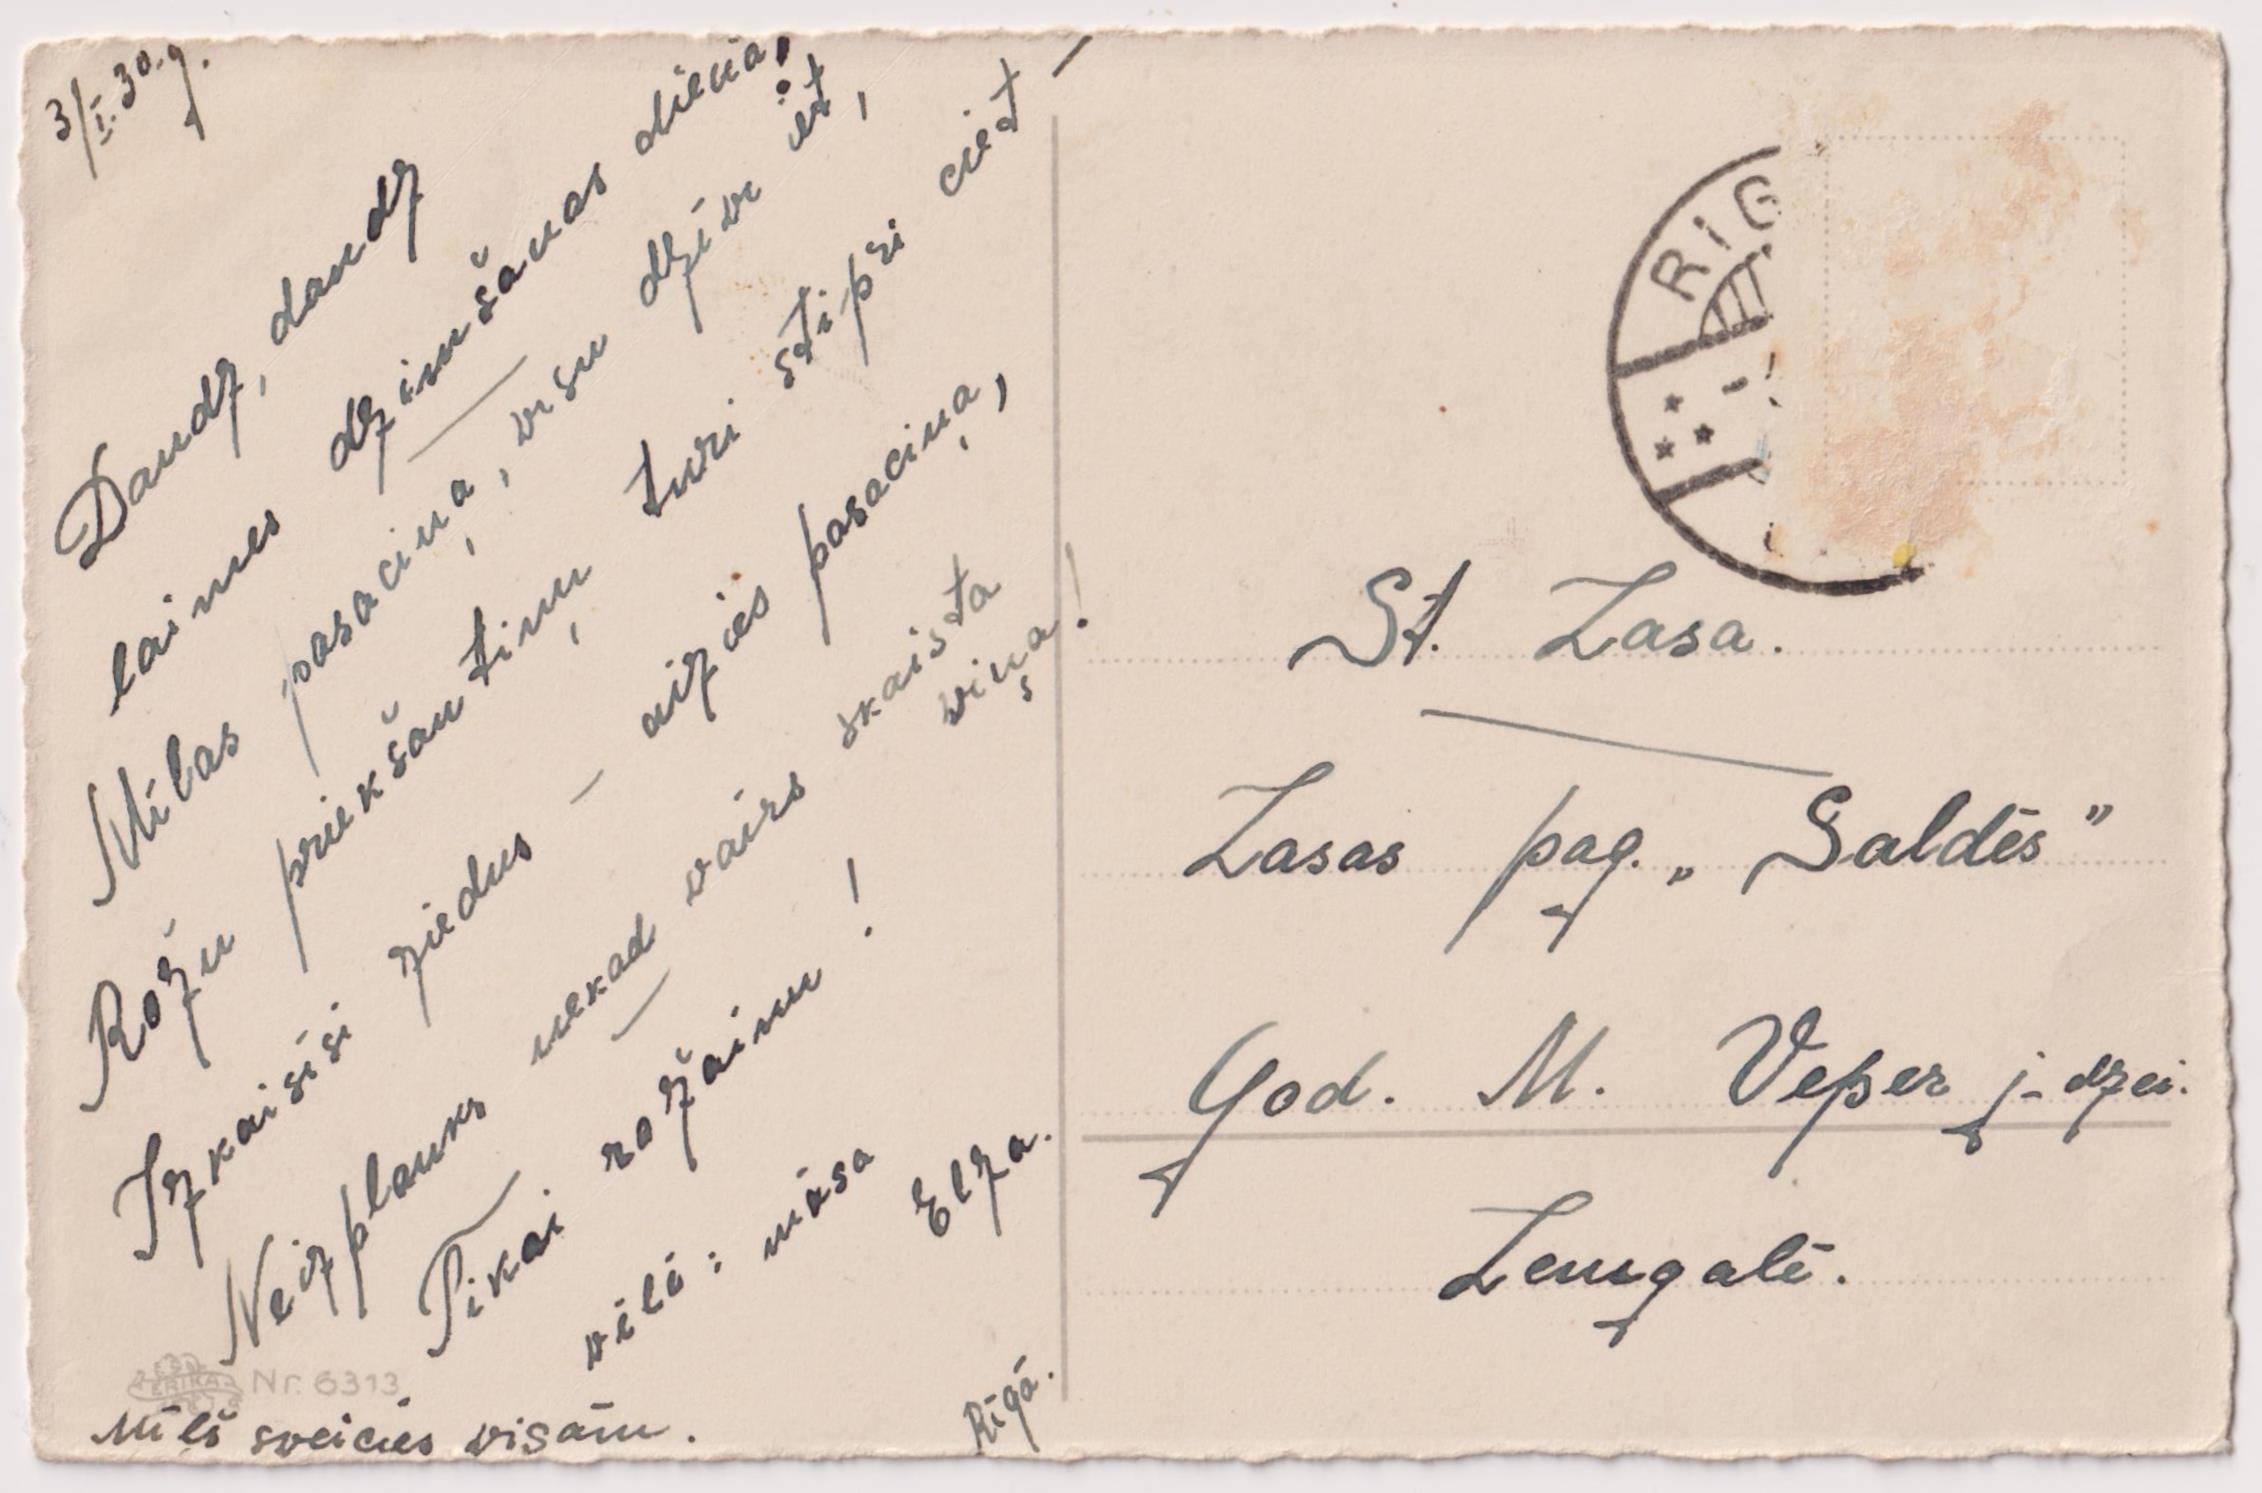 3/I. 30. g.
Daudz, daudz
laimes dzimšanas dienā!
Mīlas pasaciņa, visu dzīvi iet,
Rožu priekšautiņu turi stipri ciet –
Izkaisīsi ziedus – aizies pasaciņa,
Neizplauks nekad vairs skaista
viņa!
Tikai rožainu!
vēlē: māsa
Elza.
Rīgā.
Mīļš sveiciens visām.
ERIKA Nr. 6313
RIG
St. Zasa.
Zasas pag. „Saldēs"
God. M. Veper j-dzei.
Zemgalē.